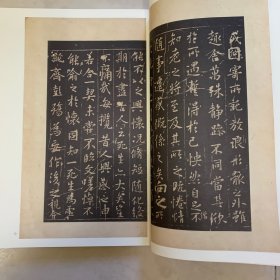 因寄所託放浪形骸之外雖
趣舍萬殊靜躁不同當其欣
於所遇暫得於己快然自足不
知老之將至及其所之既惓情
隨事遷感慨係之矣向之所
能不以之興懷況脩短隨化終
期於盡古人云死生亦大矣豈
不痛哉每攬昔人興感之由
若合一契未嘗不臨文嗟悼不
能喻之於懷固知一死生為虛
誕齊彭殤為妄作後之視今